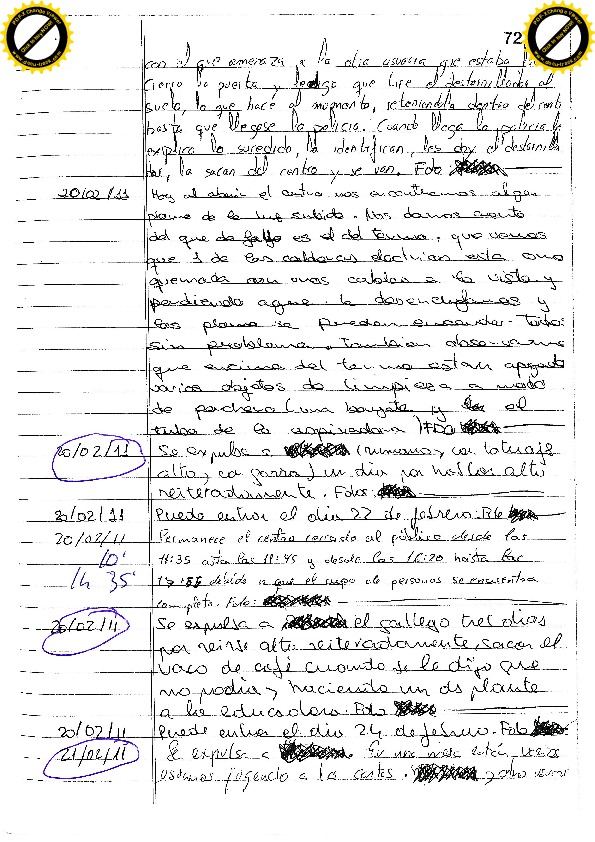 72
con el que amenaza a la otra usuaria que estaba
Cierro la puerta y le digo que tire el destornillador al
suelo, lo que hace al momento, reteniendola dentro del
hasta que llegase la policia. Cuando llega la policia le
explico lo sucedido, la identifican, les doy el destornilla
dor, la sacan del centro y se van. Fdo
20/02/11 Hoy al abrir el centro nos encontramos algun
plomo de la luz subido. Nos damos cuenta
del que da fallo es el del termo, que vemos
que 1 de las calderas electricas esta
quemada con unos cables a la vista y
perdiendo agua. la desenchufamos y
los plomos se pueden encender. Todos
sin problema. Tambien observamos
que encima del termo estan
varios objetos de limpieza a modo
de perchero (una bayeta y el
tubo de la aspiradora) Fdo
20/02/11 Se expulsa a (rumano y con tatuaje
alto, con gorra) un dia por hablar alto
reiteradamente. Fdo:
20/02/11 Puede entrar el dia 22 de febrero. Fdo
20/02/11 Permanece el centro cerrado al público desde las
10' 11:35 asta las 11:45 y desde las 16:20 hasta las
1h 35' debido a que el cupo de personas se encuentra
completo. Fdo:
20/02/11 Se expulsa a el gallego tres dias
por reirse alto reiteradamente, sacar el
vaso de café cuando se le dijo que
no podia y haciendo un plante
a la educadora. Fdo
20/02/11 Puede entrar el dia 24 de febrero. Fdo
21/02/11 Se expulsa a En una mesa están
usuarios jugando a las cartas. y otro